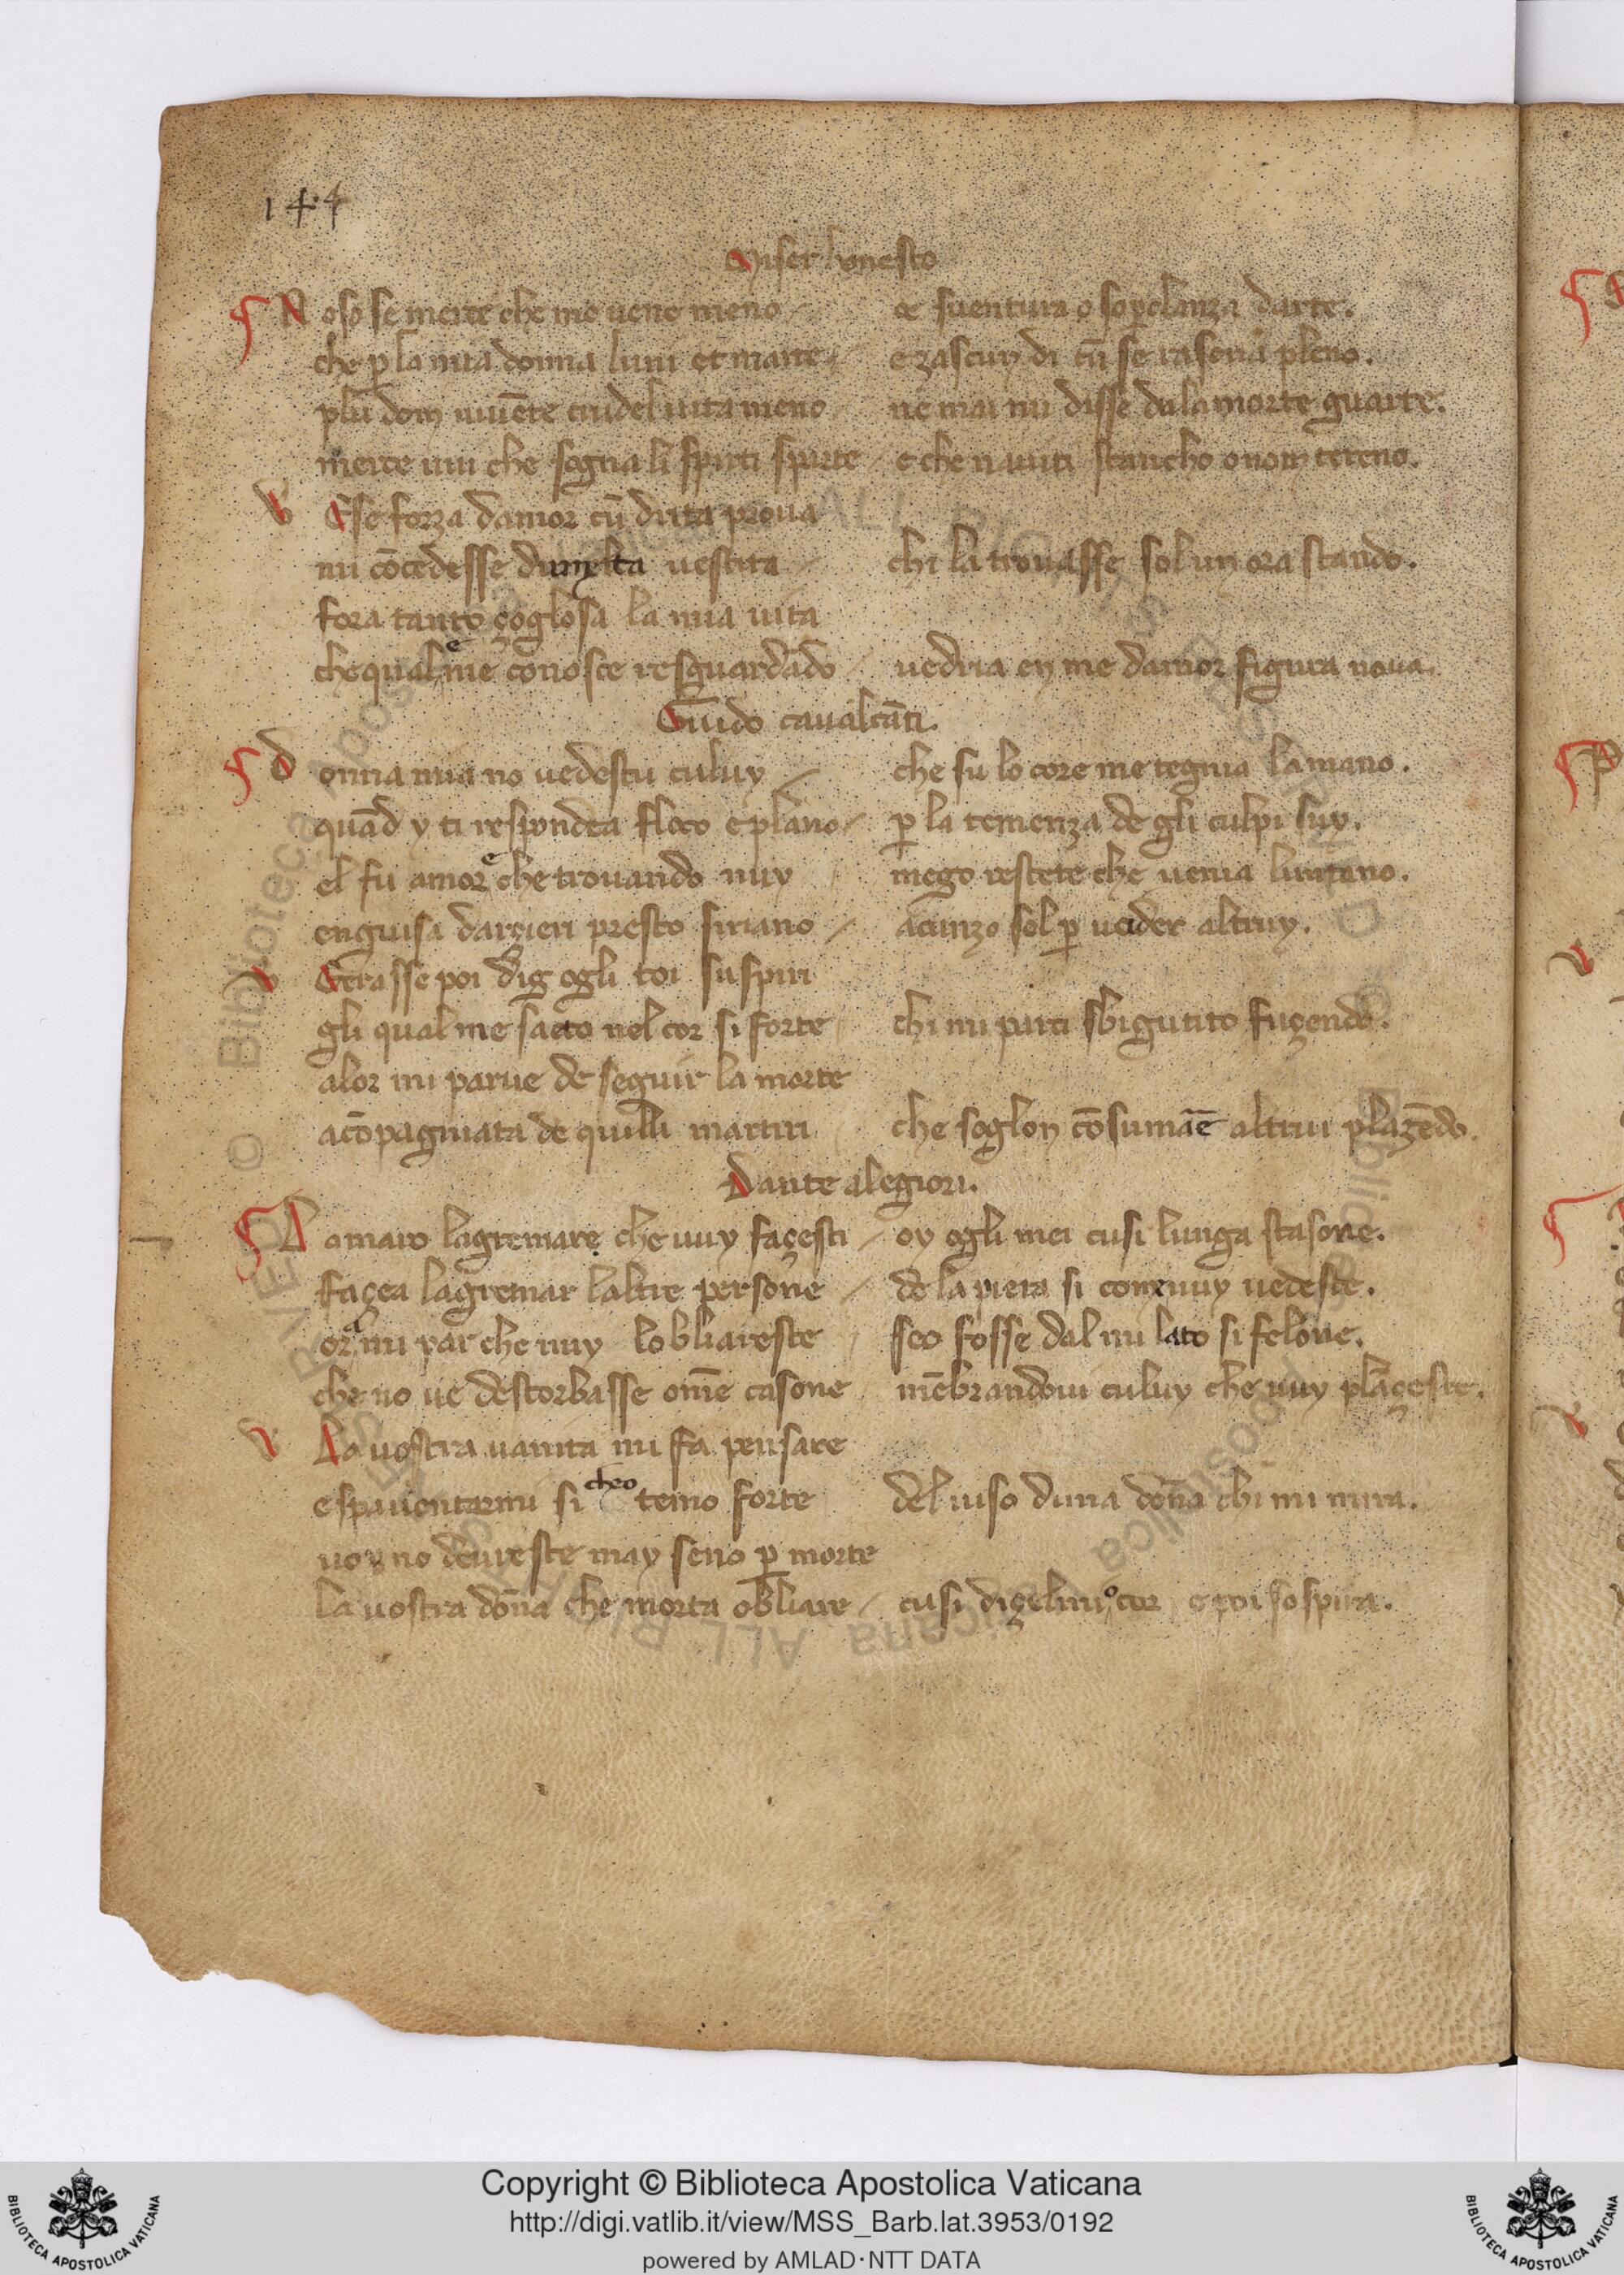 144
Miser honesto
Noso se merce che me uene meno / ce suentura o sop̄clanza darte.
che p̄ la mia donna luni et marte / e zascun di cū se rasona pleno.
plu dom uiuēte crudel uita meno / ne mai mi disse dala morte guarte.
merce mi che sogna li spirti sparte / e che nauiti stancho onom tereno.
Ese forza damor cū dirita proua
mi cōcedesse dimelta uestita / chi la trouasse sol un ora stando.
fora tanto çoglosa la mia uita
che qualme conosce resguardādo / uedria en me damor figura noua.
Guido caualcāti.
Donna mia no uedestu culuy / che su lo core me tegnia la mano.
quād y ti respondea floco e plano / p̄ la temenza de gli culpi suy.
el fu amor che trouando nuy / mego restete che uenia luntano.
enguisa darçieri presto siriano / acunzo sol p̄ ucider altruy.
Etrasse poi dig ogli toi suspiri
gli qual me saeto nel cor si forte / chi mi parti sbigutito fuçendo.
alor mi parue de seguir la morte
acōpagniata de quilli martiri / che soglon cōsumare altrui plazēdo.
Dante alegiori.
Lamaro lagremare che uuy façesti / oy ogli mei cusi lunga stasone.
façea lagremar laltre persone / de la piera si como uuy uedeste.
ora mi par che uuy lobliareste / seo fosse dal mi lato si felone.
che no ue destorbasse om̄e casone / mēbrandoui culuy che uuy plançeste.
La uostra uanita mi fa pensare
espauentarmi si cheo temo forte / del uiso duna dōna chi mi mira.
uoy no deureste may seno p̄ morte
la uostra dōna che morta obliare / cusi diçel mio cor e poi sospira.
Copyright © Biblioteca Apostolica Vaticana
http://digi.vatlib.it/view/MSS_Barb.lat.3953/0192
powered by AMLAD·NTT DATA
BIBLIOTECA APOSTOLICA VATICANA
BIBLIOTECA APOSTOLICA VATICANA